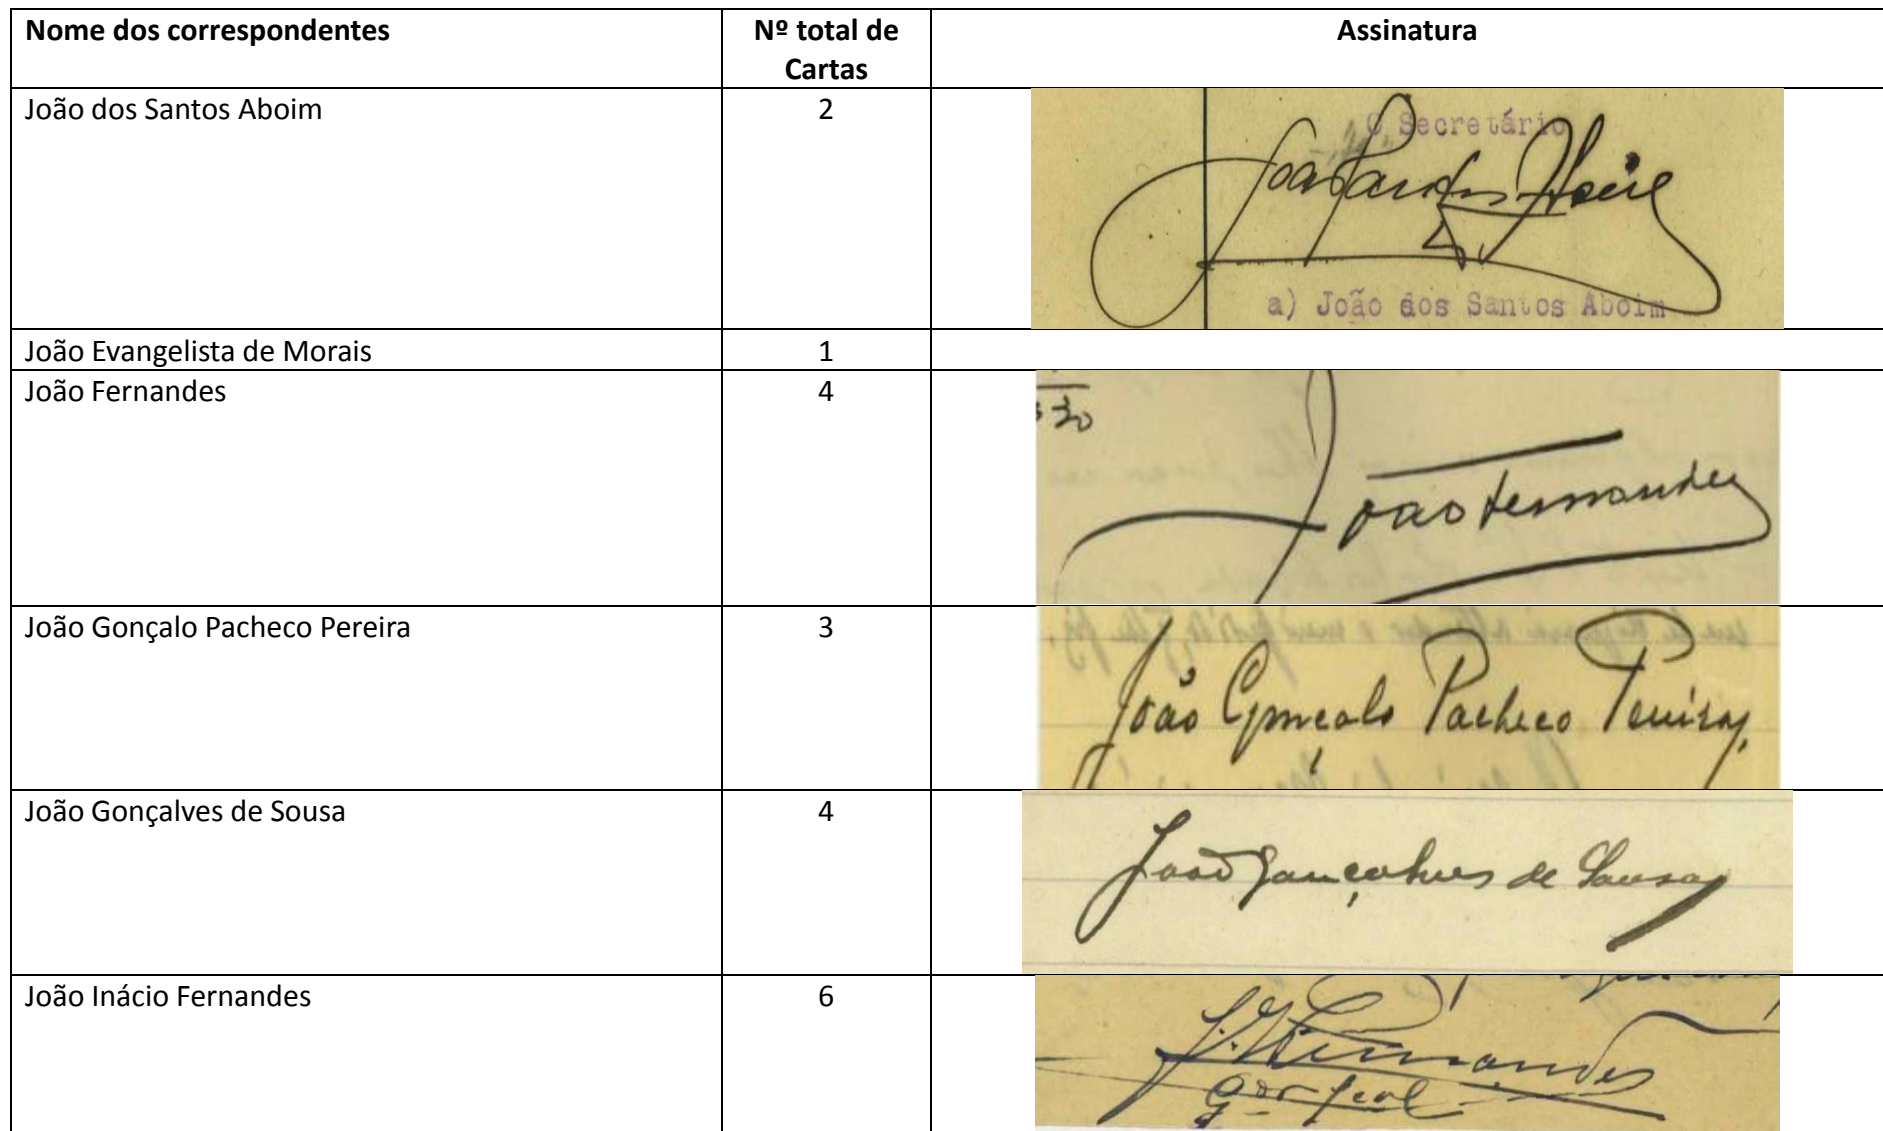 Nome dos correspondentes Nº total de Cartas Assinatura
João dos Santos Aboim 2
O Secretário
João Santos Aboim
a) João dos Santos Aboim
João Evangelista de Morais 1
João Fernandes 4
30
João Fernandes
João Gonçalo Pacheco Pereira 3
João Gonçalo Pacheco Pereira
João Gonçalves de Sousa 4
João Gonçalves de Sousa
João Inácio Fernandes 6
J. I. Fernandes